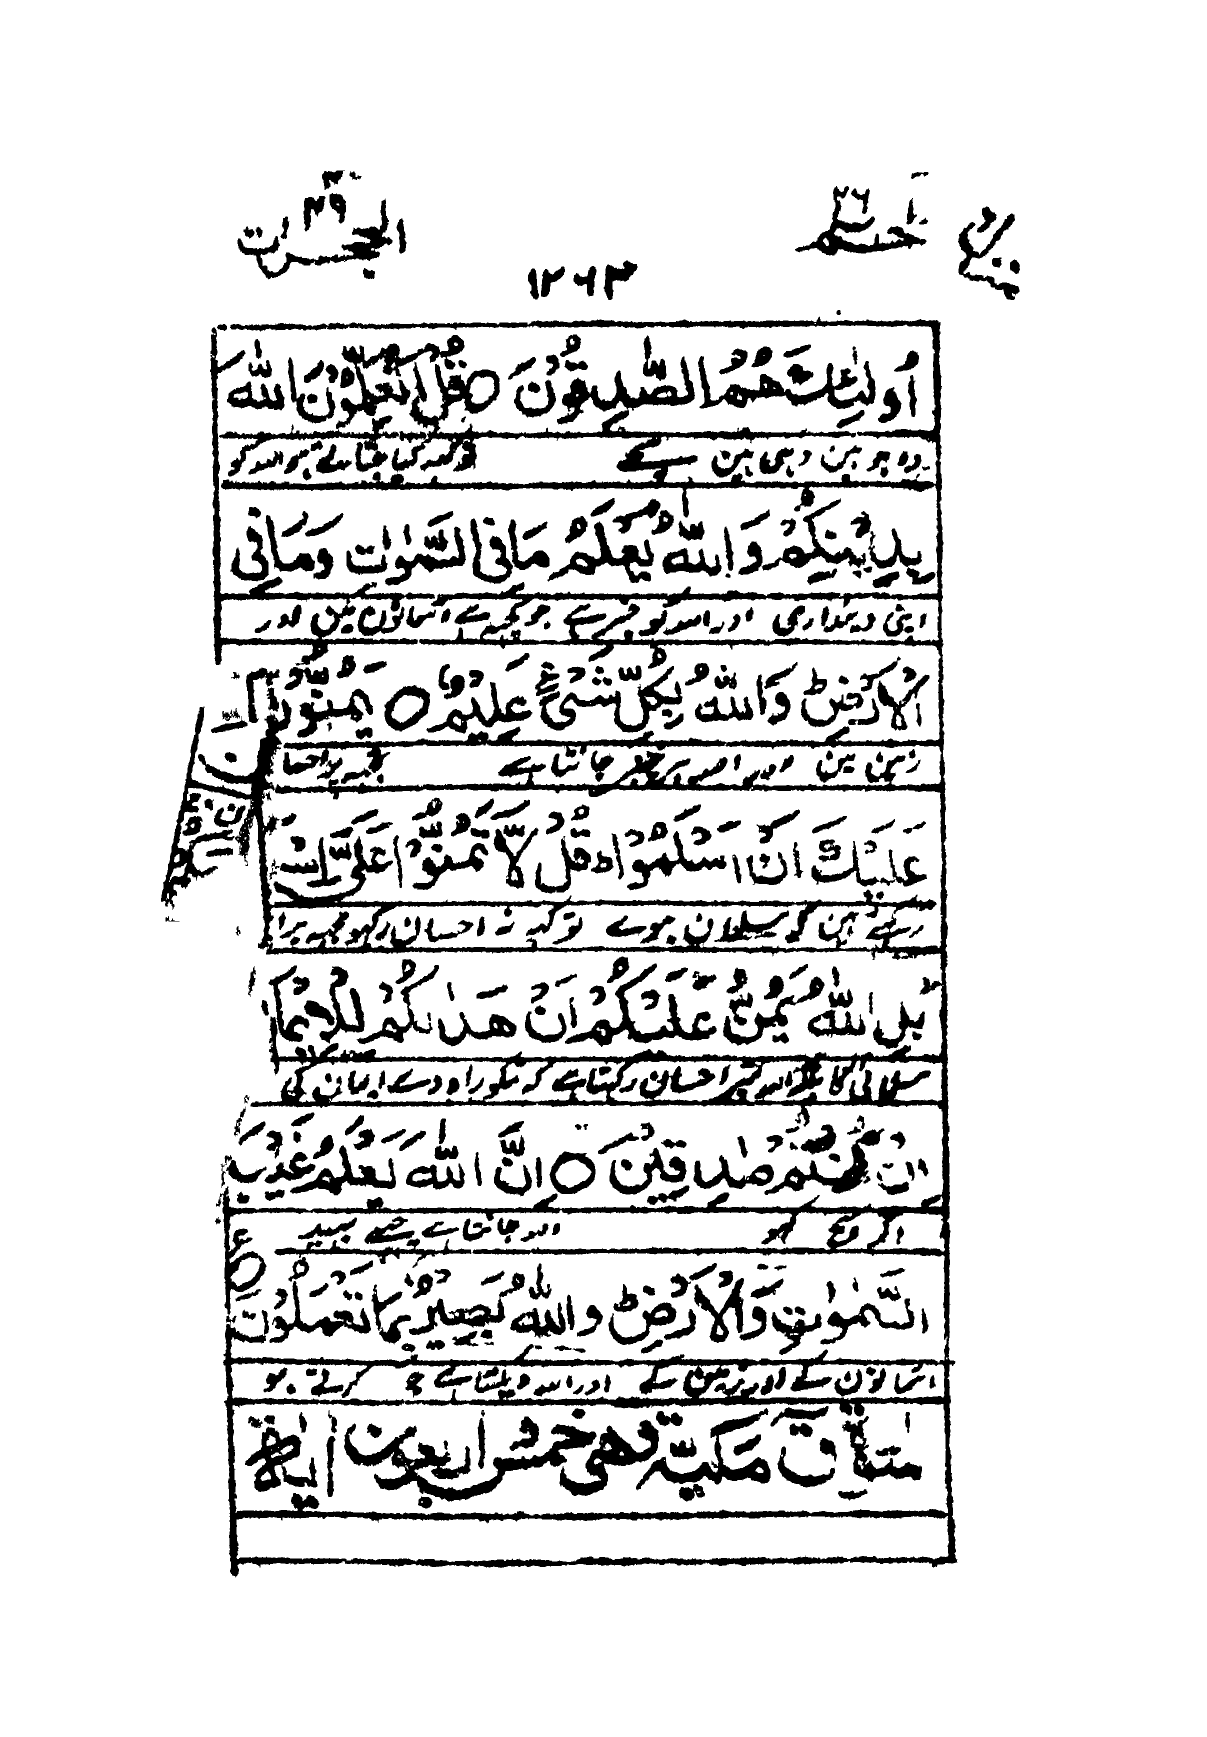 الحجرات ٤٩
حم ٢٦
١٢٦٣
أُولٰٓئِكَ هُمُ الصّٰدِقُوْنَ ○ قُلْ اَتُعَلِّمُوْنَ اللّٰهَ
وہ جو ہین وہی ہین سچے تو کہہ کیا جتاتے ہو اللہ کو
بِدِيْنِكُمْ وَاللّٰهُ يَعْلَمُ مَا فِى السَّمٰوٰتِ وَمَا فِى
اپنی دینداری اور اللہ کو خبر ہے جو کچھ ہے آسمانون مین اور
الْاَرْضِ ط وَاللّٰهُ بِكُلِّ شَىْءٍ عَلِيْمٌ ○ يَمُنُّوْنَ
زمین مین اور اللہ ہر چیز جانتا ہے تجھہ پر احسا
عَلَيْكَ اَنْ اَسْلَمُوْا ط قُلْ لَّا تَمُنُّوْا عَلَىَّ اِسْ
رکھتے ہین کہ مسلمان ہوے تو کہہ نہ احسان رکھو مجھہ پر ا
بَلِ اللّٰهُ يَمُنُّ عَلَيْكُمْ اَنْ هَدٰىكُمْ لِلْاِيْمَا
مسلمانی کا بلکہ اللہ تمپر احسان رکھتا ہے کہ تمکو راہ دے ایمان کی
اِنْ كُنْتُمْ صٰدِقِيْنَ ○ اِنَّ اللّٰهَ يَعْلَمُ غَيْبَ
اگر سچ کہو اللہ جانتا ہے چھپے بھید
السَّمٰوٰتِ وَالْاَرْضِ ط وَاللّٰهُ بَصِيْرٌۢ بِمَا تَعْمَلُوْنَ ○ ع
آسمانون کے اور زمین کے اور اللہ دیکھتا ہے جو کرتے ہو
قٓ مَكِّيَّةٌ وَهِىَ خَمْسٌ وَاَرْبَعُوْنَ اٰيَةً